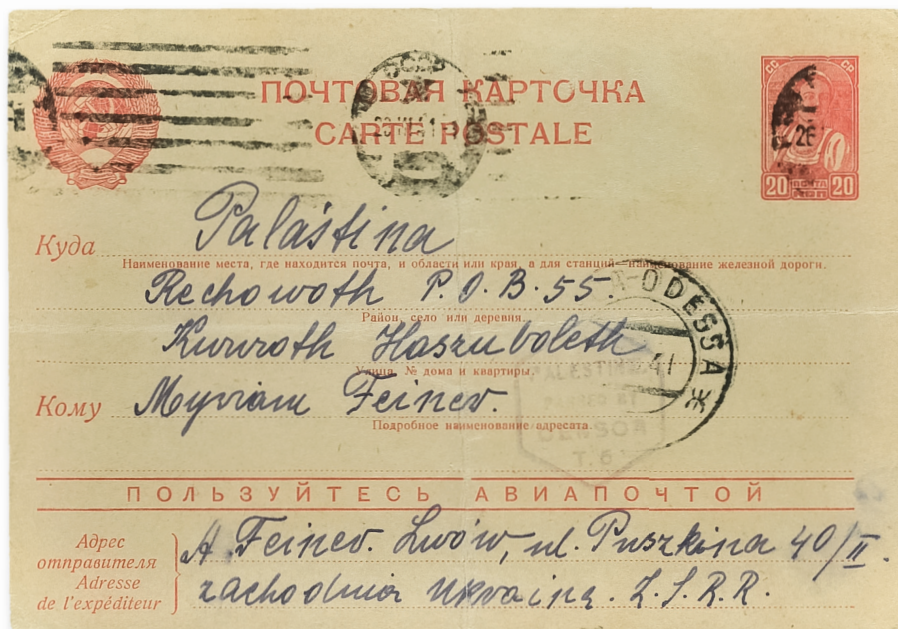 ПОЧТОВАЯ КАРТОЧКА
CARTE POSTALE
СС СР
20 ПОЧТА 20
Куда Palästina
Наименование места, где находится почта, и области или края, а для станций—наименование железной дороги.
Rechowoth P.O.B. 55.
Район, село или деревня.
Kwuroth Haszuboleth
Улица, № дома и квартиры.
Кому Myriam Feiner.
Подробное наименование адресата.
ODESSA
41
PALESTINE
PASSED BY
CENSOR
T.6
ПОЛЬЗУЙТЕСЬ АВИАПОЧТОЙ
Адрес отправителя
Adresse de l'expéditeur
A. Feiner. Lwów, ul. Puszkina 40/II.
zachodnia Ukraina. Z.S.R.R.